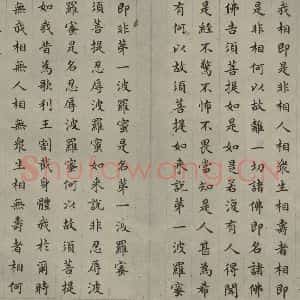 我相即是非相人相衆生相壽者相即
是非相何以故離一切諸相即名諸佛
佛告須菩提如是如是若復有人得聞
是經不驚不怖不畏當知是人甚為希
有何以故須菩提如來說第一波羅蜜
即非第一波羅蜜是名第一波羅蜜
須菩提忍辱波羅蜜如來說非忍辱波
羅蜜是名忍辱波羅蜜何以故須菩提
如我昔為歌利王割截身體我於爾時
無我相無人相無衆生相無壽者相何
Shufawang.CN